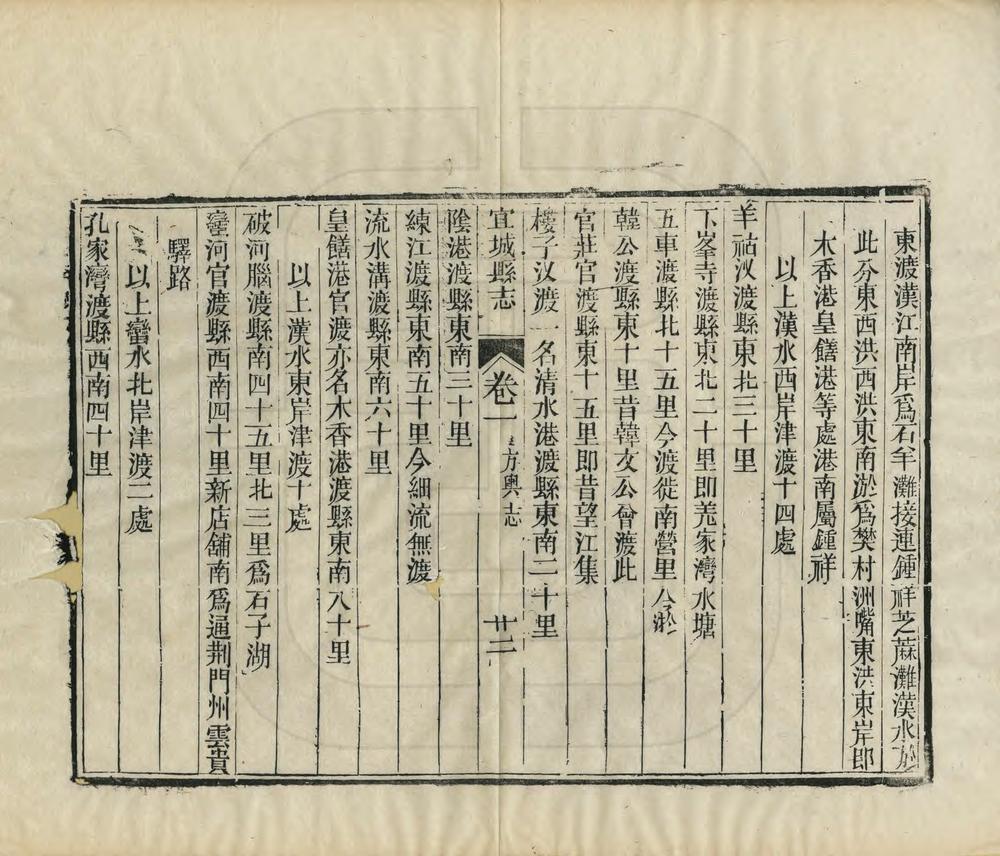 東渡漢江南岸爲石牟灘接連鍾祥芝蔴灘漢水於
此分東西洪西洪東南淤爲樊村洲嘴東洪東岸即
木香港皇饍港等處港南屬鍾祥
以上漢水西岸津渡十四處
羊祜汊渡縣東北三十里
下峯寺渡縣東北二十里即羗家灣水塘
五車渡縣北十五里今渡徙南營里今淤
韓公渡縣東十里昔韓文公曾渡此
官莊官渡縣東十五里即昔望江集
樓子汊渡一名清水港渡縣東南二十里
宜城縣志 卷一 方輿志 廿二
陰港渡縣東南三十里
練江渡縣東南五十里今細流無渡
流水溝渡縣東南六十里
皇饍港官渡亦名木香港渡縣東南八十里
以上漢水東岸津渡十處
破河腦渡縣南四十五里北三里爲石子湖
蠻河官渡縣西南四十里新店舖南爲通荆門州雲貴
驛路
以上蠻水北岸津渡二處
孔家灣渡縣西南四十里